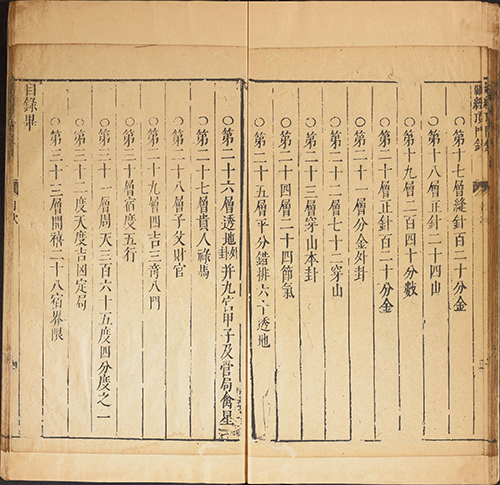 羅經頂門針
○第十七層縫針百二十分金
○第十八層正針二十四山
○第十九層二百四十分數
○第二十層正針百二十分金
○第二十一層分金外卦
○第二十二層七十二穿山
○第二十三層穿山本卦
○第二十四層二十四節氣
○第二十五層平分錯排六十透地
○第二十六層透地外卦并九宮甲子及管局禽星
○第二十七層貴人祿馬
○第二十八層子父財官
○第二十九層四吉三竒八門
○第三十層宿度五行
○第三十一層周天三百六十五度四分度之一
○第三十二度天度吉凶定局
○第三十三層開禧二十八宿界限
目錄畢